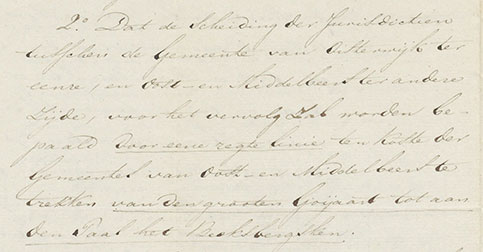 2.º Dat de Scheiding der Jurisdictien
tusschen de Gemeente van Oisterwijk ter
eenre, en Oost- en Middelbeers ter andere
Zijde, voor het vervolg Zal worden be-
paald door eene regte linie ten koste der
Gemeentes van Oost- en Middelbeers te
trekken van den grooten Goijaart tot aan
den Paal het